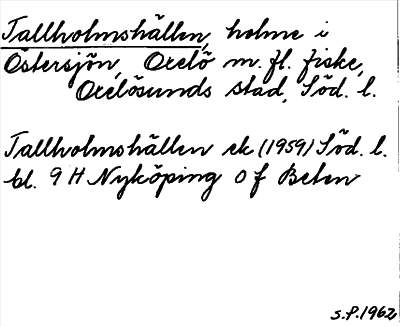 Tallholmshällen, holme i
Östersjön, Oxelö m. fl. fiske,
Oxelösunds stad, Söd. l.
Tallholmshällen ek (1959) Söd. l.
bl. 9 H Nyköping o f Beten
S.P. 1962